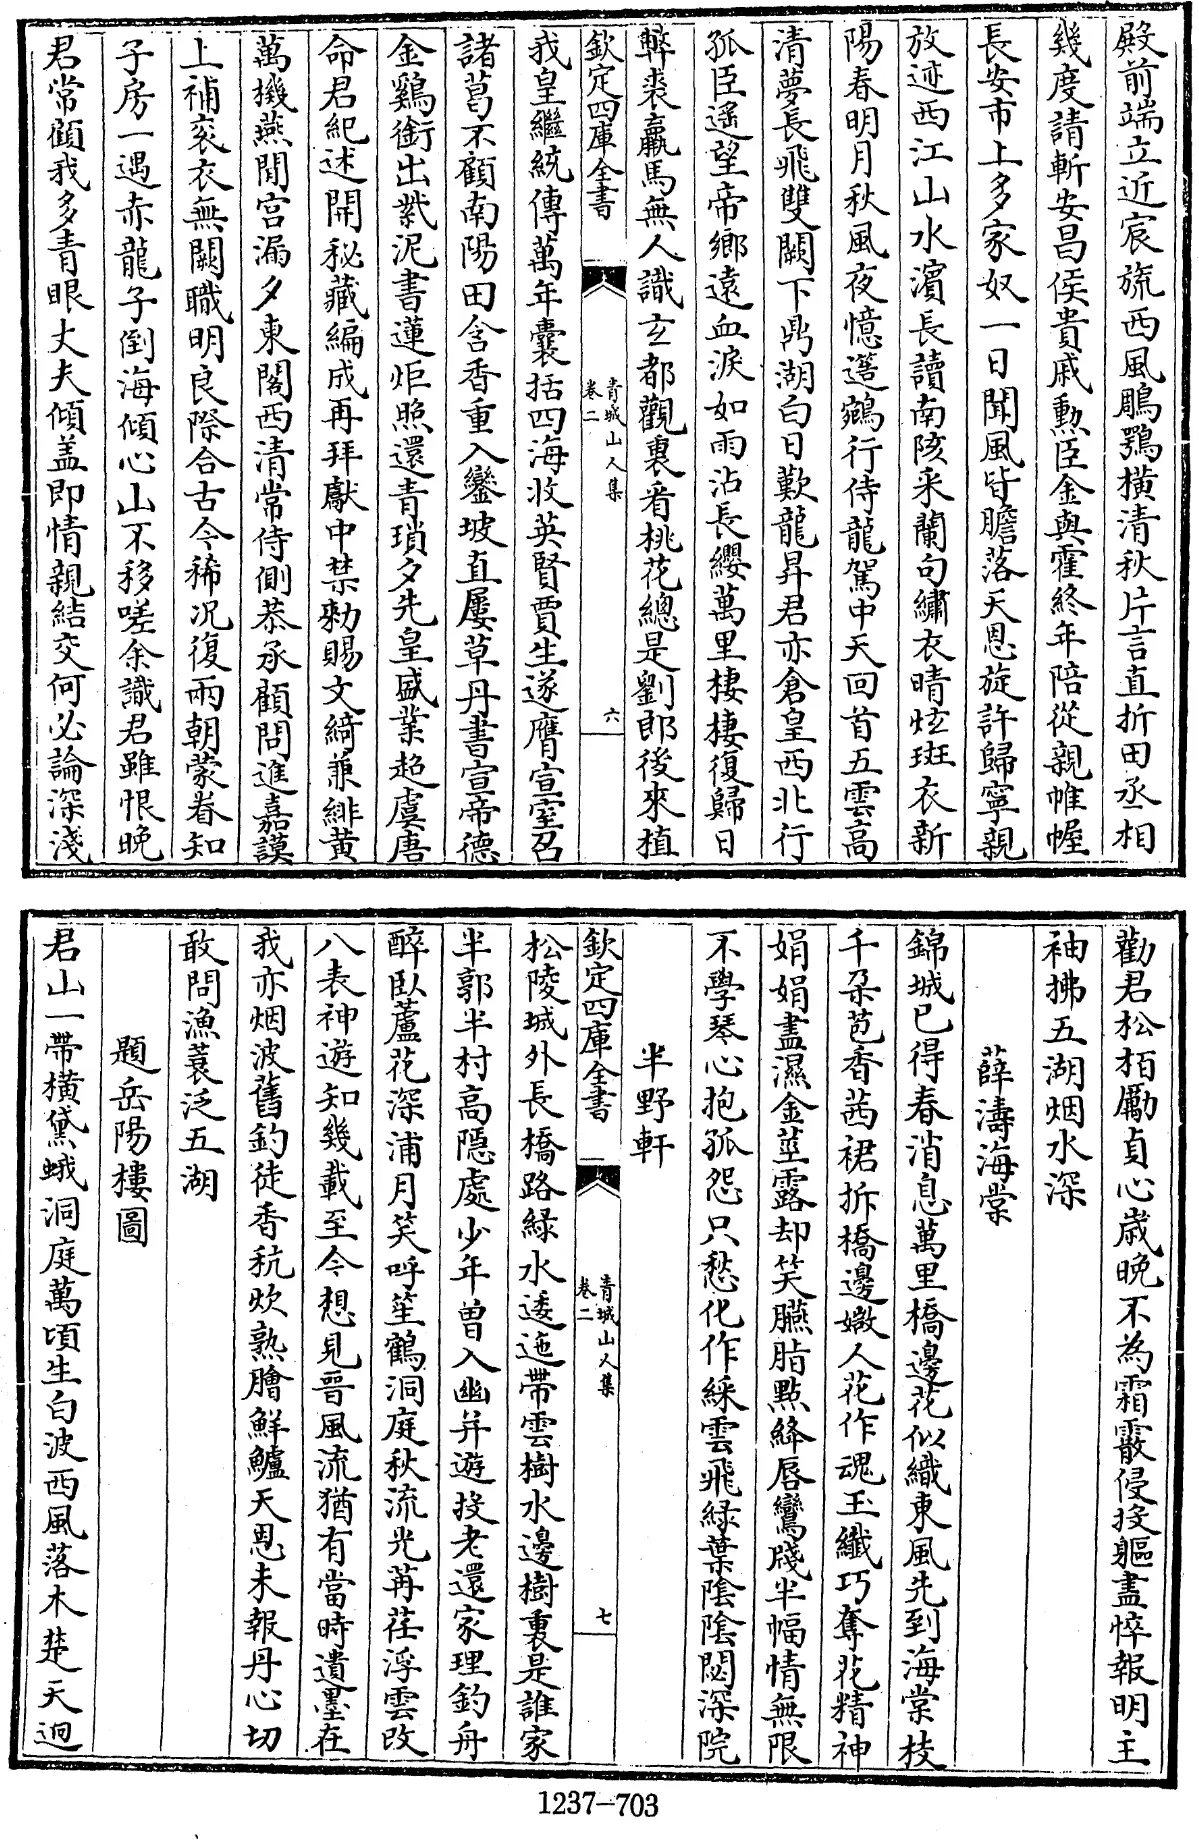 殿前端立近宸旒西風鵰鶚横清秋片言直折田丞相
幾度請斬安昌侯貴戚勲臣金與霍終年陪從親帷幄
長安市上多家奴一日聞風皆膽落天恩旋許歸寧親
放迹西江山水濵長讀南陔采蘭句繡衣晴炫斑衣新
陽春明月秋風夜憶簉鵷行侍龍駕中天回首五雲高
清夢長飛雙闕下鼎湖白日歎龍昇君亦倉皇西北行
孤臣遥望帝鄉逺血淚如雨沾長纓萬里棲棲復歸日
弊裘羸馬無人識玄都觀裏看桃花總是劉郎後來植
欽定四庫全書
青城山人集
卷二
六
我皇繼統傳萬年囊括四海收英賢賈生遂膺宣室召
諸葛不顧南陽田含香重入鑾坡直屢草丹書宣帝德
金鷄銜出紫泥書蓮炬照還青瑣夕先皇盛業超虞唐
命君紀述開秘藏編成再拜獻中禁勅賜文綺兼緋黄
萬機燕閒宫漏夕東閣西清常侍側恭承顧問進嘉謨
上補衮衣無闕職明良際合古今稀况復兩朝蒙眷知
子房一遇赤龍子倒海傾心山不移嗟余識君雖恨晚
君常顧我多青眼丈夫傾盖即情親結交何必論深淺
勸君松栢勵貞心歳晚不為霜霰侵投軀盡悴報明主
袖拂五湖烟水深
薛濤海棠
錦城已得春消息萬里橋邊花似織東風先到海棠枝
千朶苞香茜裙拆橋邊媺人花作魂玉纖巧奪花精神
娟娟盡濕金莖露却笑臙脂點絳唇鸞牋半幅情無限
不學琴心抱孤怨只愁化作綵雲飛緑葉陰陰閟深院
半野軒
欽定四庫全書
青城山人集
卷二
七
松陵城外長橋路緑水逶迤帶雲樹水邊樹裏是誰家
半郭半村高隱處少年曽入幽并遊投老還家理釣舟
醉臥蘆花深浦月笑呼笙鶴洞庭秋流光苒荏浮雲改
八表神遊知幾載至今想見晉風流猶有當時遺墨在
我亦烟波舊釣徒香秔炊熟膾鮮鱸天恩未報丹心切
敢問漁蓑泛五湖
題岳陽樓圖
君山一帶横黛蛾洞庭萬頃生白波西風落木楚天迥
1237-703